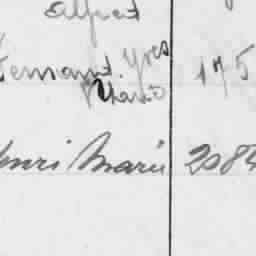 Alfred
Fernand Yves 175
Marie
Henri Marie 2084